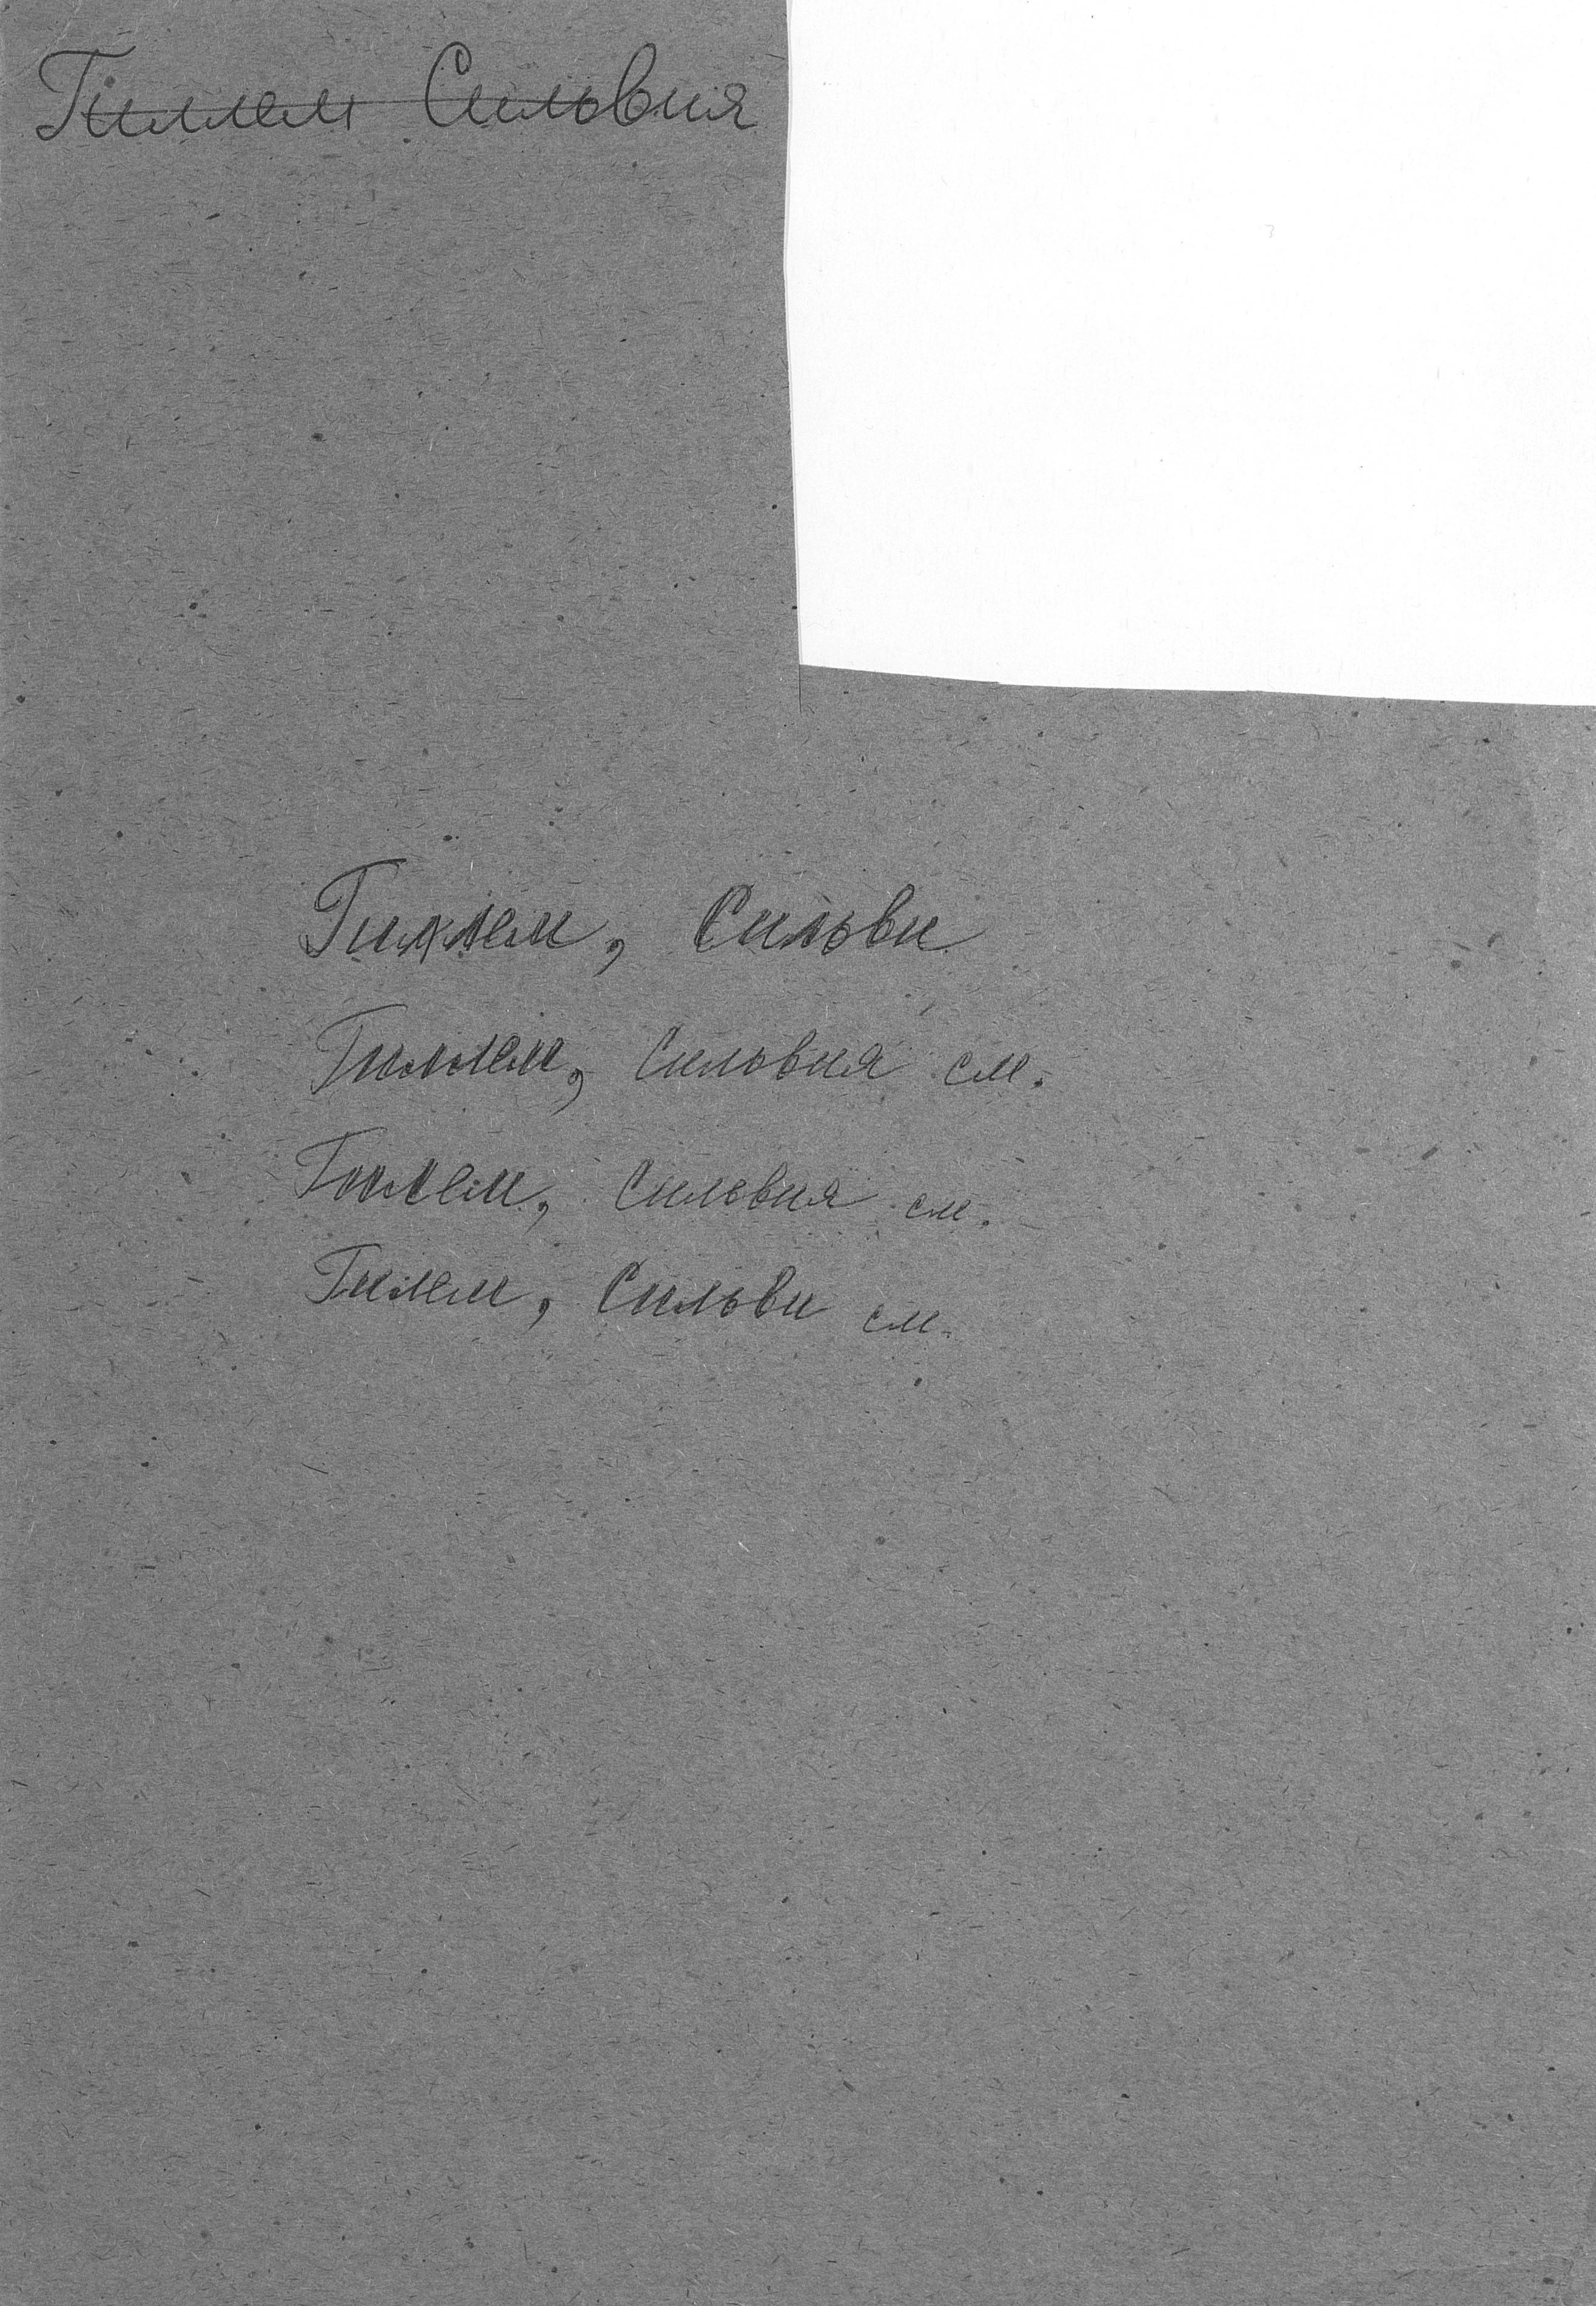 Гиллем Сильвия
Гиллем, Сильви
Гиллем, Сильвия см.
Гилем, Сильвия см.
Гилем, Сильви см.